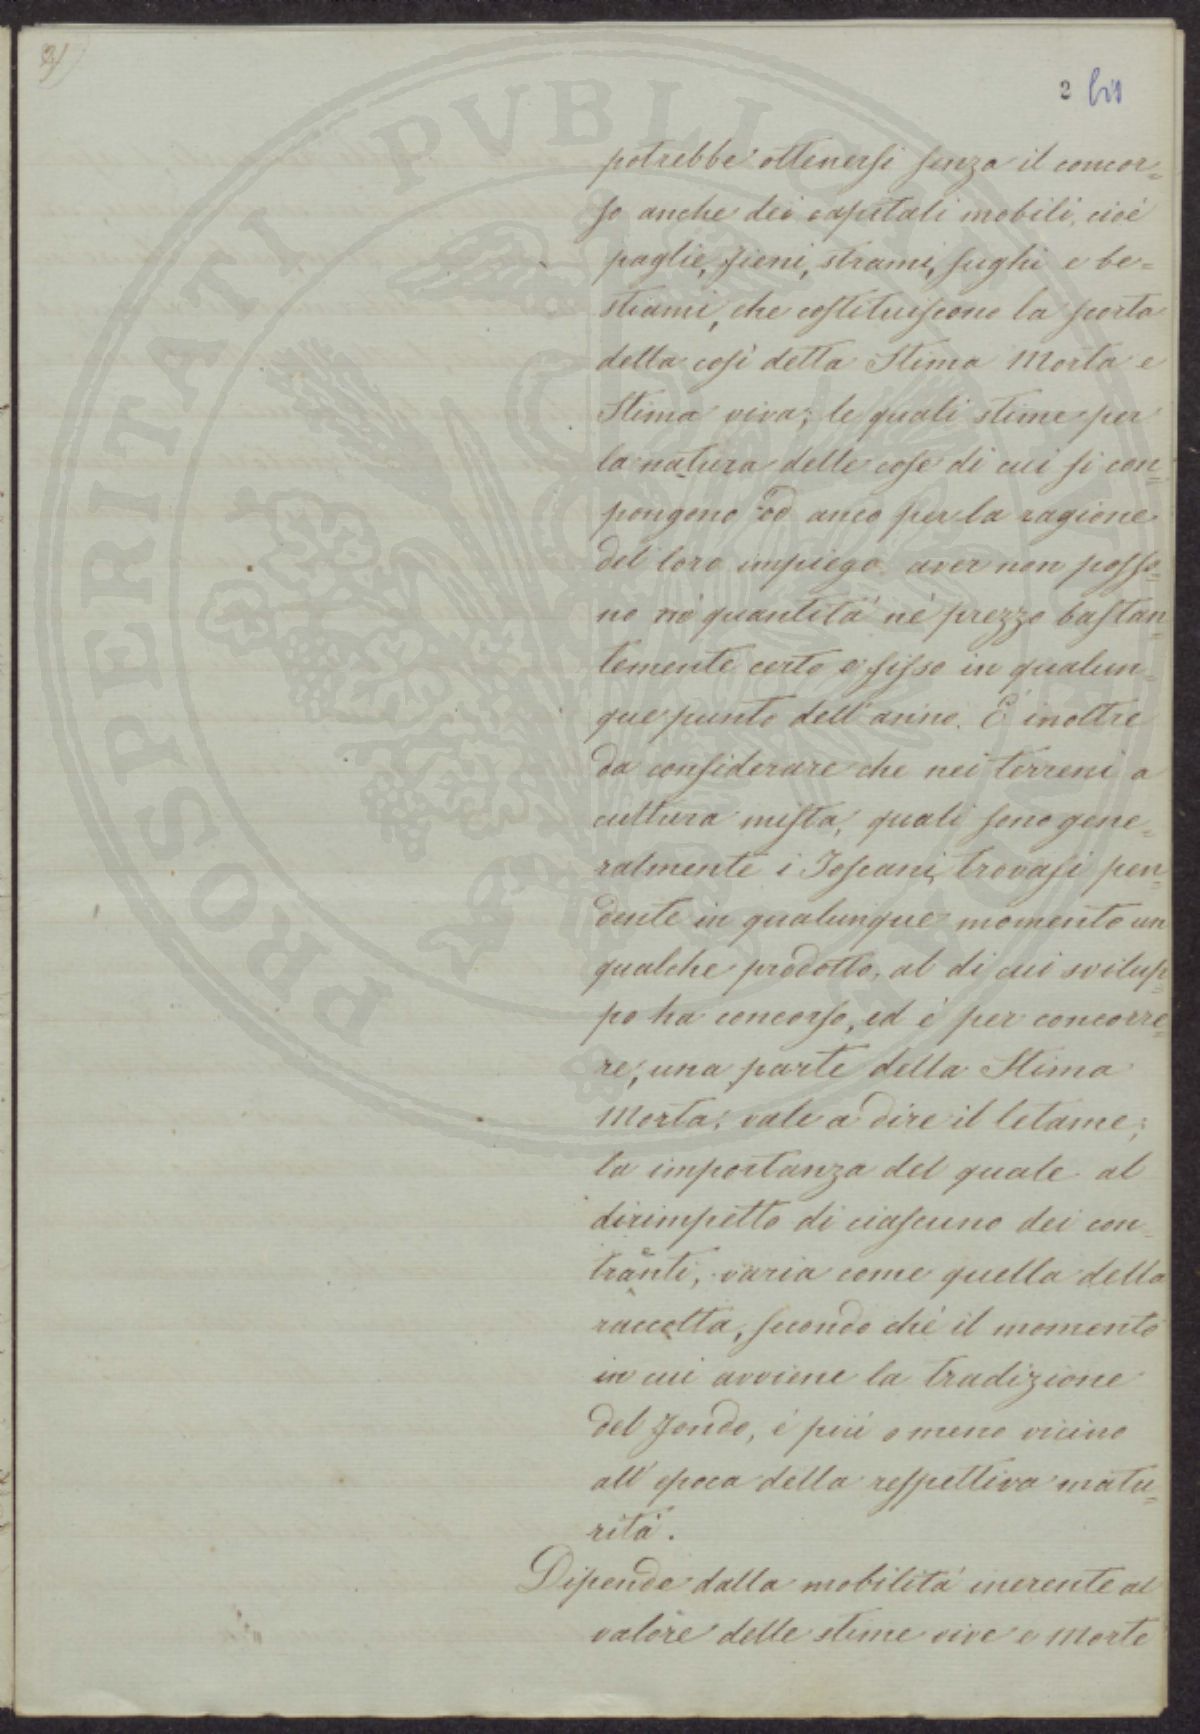 3)
2 bis
potrebbe ottenersi senza il concor=
so anche dei capitali mobili, cioè
paglie, fieni, strami, sughi e be=
stiami, che costituiscono la scorta
della così detta Stima Morta e
Stima viva; le quali stime per
la natura delle cose di cui si con=
pongono ed anco per la ragione
del loro impiego aver non posso=
no nè quantità nè prezzo bastan=
temente certo e fisso in qualun=
que punto dell'anno. È inoltre
da considerare che nei terreni a
cultura mista, quali sono gene=
ralmente i Toscani, trovasi pen=
dente in qualunque momento un
qualche prodotto, al di cui svilup=
po ha concorso, ed è per concorre=
re, una parte della Stima
Morta; vale a dire il letame;
la importanza del quale al
dirimpetto di ciascuno dei con=
traenti, varia come quella della
raccolta, secondo chè il momento
in cui avviene la tradizione
del fondo, è più o meno vicino
all'epoca della respettiva matu=
rità.
Dipende dalla mobilità inerente al
valore delle stime vive e Morte
PROSPERITATI PVBLICAE